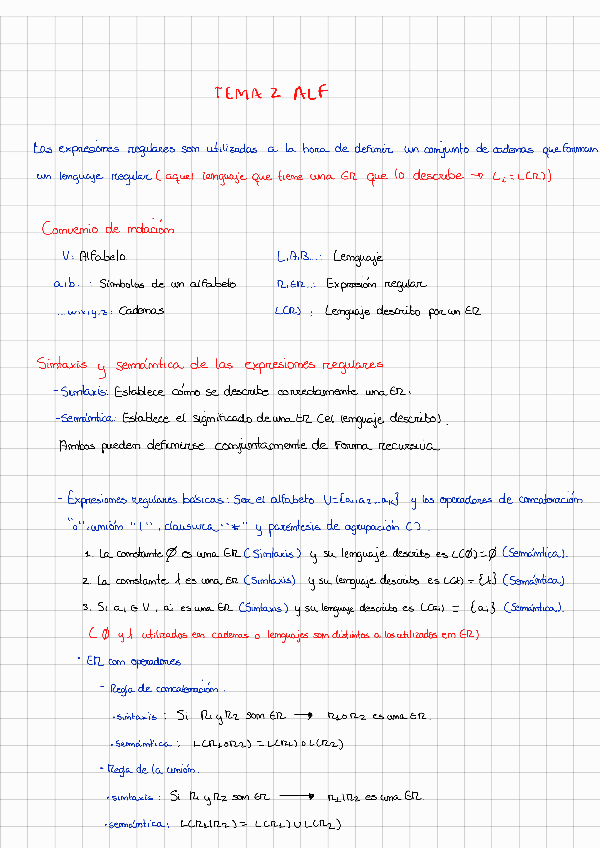 TEMA 2 ALF
Las expresiones regulares son utilizadas a la hora de definir un conjunto de cadenas que forman
un lenguaje regular (aquel lenguaje que tiene una ER que lo describe → L₁ = L(R))
Convenio de notación
V: Alfabeto
L,A,B...: Lenguaje
a,b..: Símbolos de un alfabeto
R,ER..: Expresión regular
...w,x,y,z: Cadenas
L(R): Lenguaje descrito por un ER
Sintaxis y semántica de las expresiones regulares
-Sintaxis: Establece cómo se describe correctamente una ER.
-Semántica: Establece el significado de una ER (el lenguaje descrito).
Ambas pueden definirse conjuntamente de forma recursiva.
- Expresiones regulares básicas: Ser el alfabeto V={a₁,a₂...aₖ} y los operadores de concatenación
"o", unión "|", clausura "*" y paréntesis de agrupación ().
1. La constante ∅ es una ER (Sintaxis) y su lenguaje descrito es L(∅)=∅ (Semántica).
2. La constante λ es una ER (Sintaxis) y su lenguaje descrito es L(λ) = {λ} (Semántica)
3. Si aᵢ ∈ V, aᵢ es una ER (Sintaxis) y su lenguaje descrito es L(aᵢ) = {aᵢ} (Semántica).
(∅ y λ utilizados en cadenas o lenguajes son distintos a los utilizados en ER)
· ER con operadores
- Regla de concatenación.
·sintaxis: Si R₁ y R₂ son ER → R₁oR₂ es una ER.
·semántica: L(R₁oR₂) = L(R₁) o L(R₂)
- Regla de la unión.
·sintaxis: Si R₁ y R₂ son ER → R₁|R₂ es una ER.
·semántica: L(R₁|R₂) = L(R₁) ∪ L(R₂)